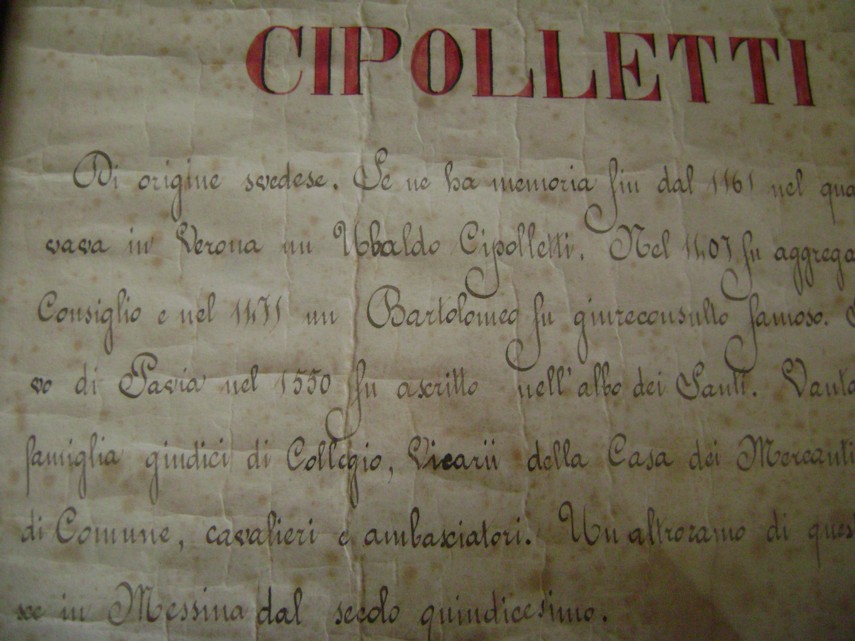 CIPOLLETTI
Di origine svedese. Se ne ha memoria fin dal 1161 nel qua
vava in Verona un Ubaldo Cipolletti. Nel 1407 fu aggrega
Consiglio e nel 1471 un Bartolomeo fu giureconsulto famoso.
vo di Pavia nel 1550 fu ascritto nell'albo dei Santi. Vanto
famiglia giudici di Collegio, Vicarii della Casa dei Mercanti
di Comune, cavalieri e ambasciatori. Un altro ramo di ques
sce in Messina dal secolo quindicesimo.